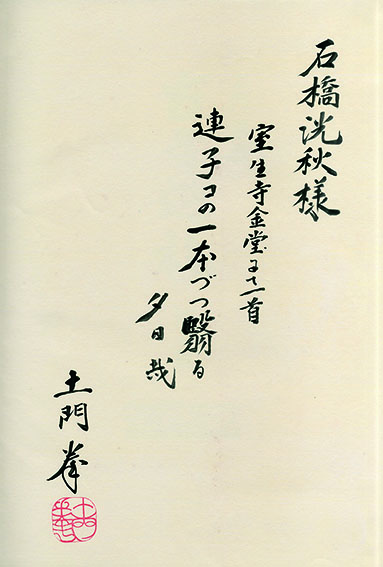 石橋洸秋様
室生寺金堂にて一首
連子コの一本づつ翳る
夕日哉
土門拳